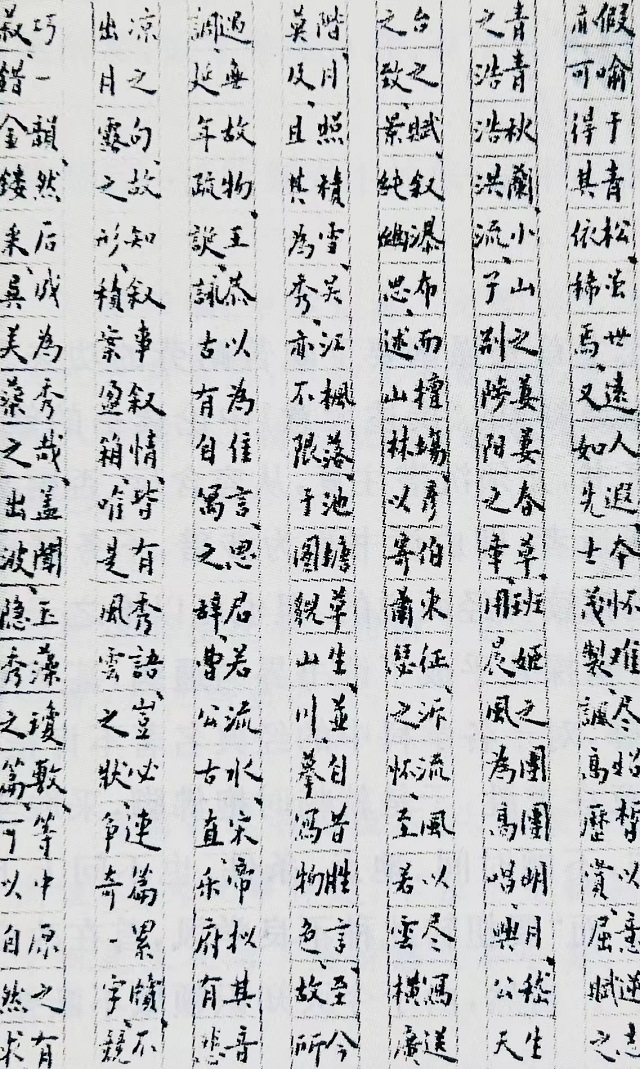 假喻于青松茔世遠人遐本怀难尽始皆以意逆志
庶可得其依稀焉又如先士茂製諷高歷賞屈賦之
青青秋蘭小山之萋萋春草班姬之團團明月嵇生
之浩浩洪流子荆陟陽之章用晨風為高唱興公天
台之賦叙瀑布而擅場彥伯東征泝流風以尽寫送
之致景純幽思述山林以寄蕭瑟之怀至若雲横廣
階月照積雪吴江楓落池塘草生並自昔胜言至今
莫及且其為秀亦不限于圖貌山川摹寫物色故所
過無故物王恭以為佳言思君若流水宋帝拟其音
調延年疏誕詠古有自寓之辞曹公古直乐府有悲
凉之句故知叙事叙情皆有秀語豈必連篇累牘不
出月露之形積案盈箱唯是風雲之狀争奇一字競
巧一韻然后成為秀哉蓋聞玉藻瓊敷等中原之有
菽錯金鏤采異美蕖之出波隐秀之篇可以自然求